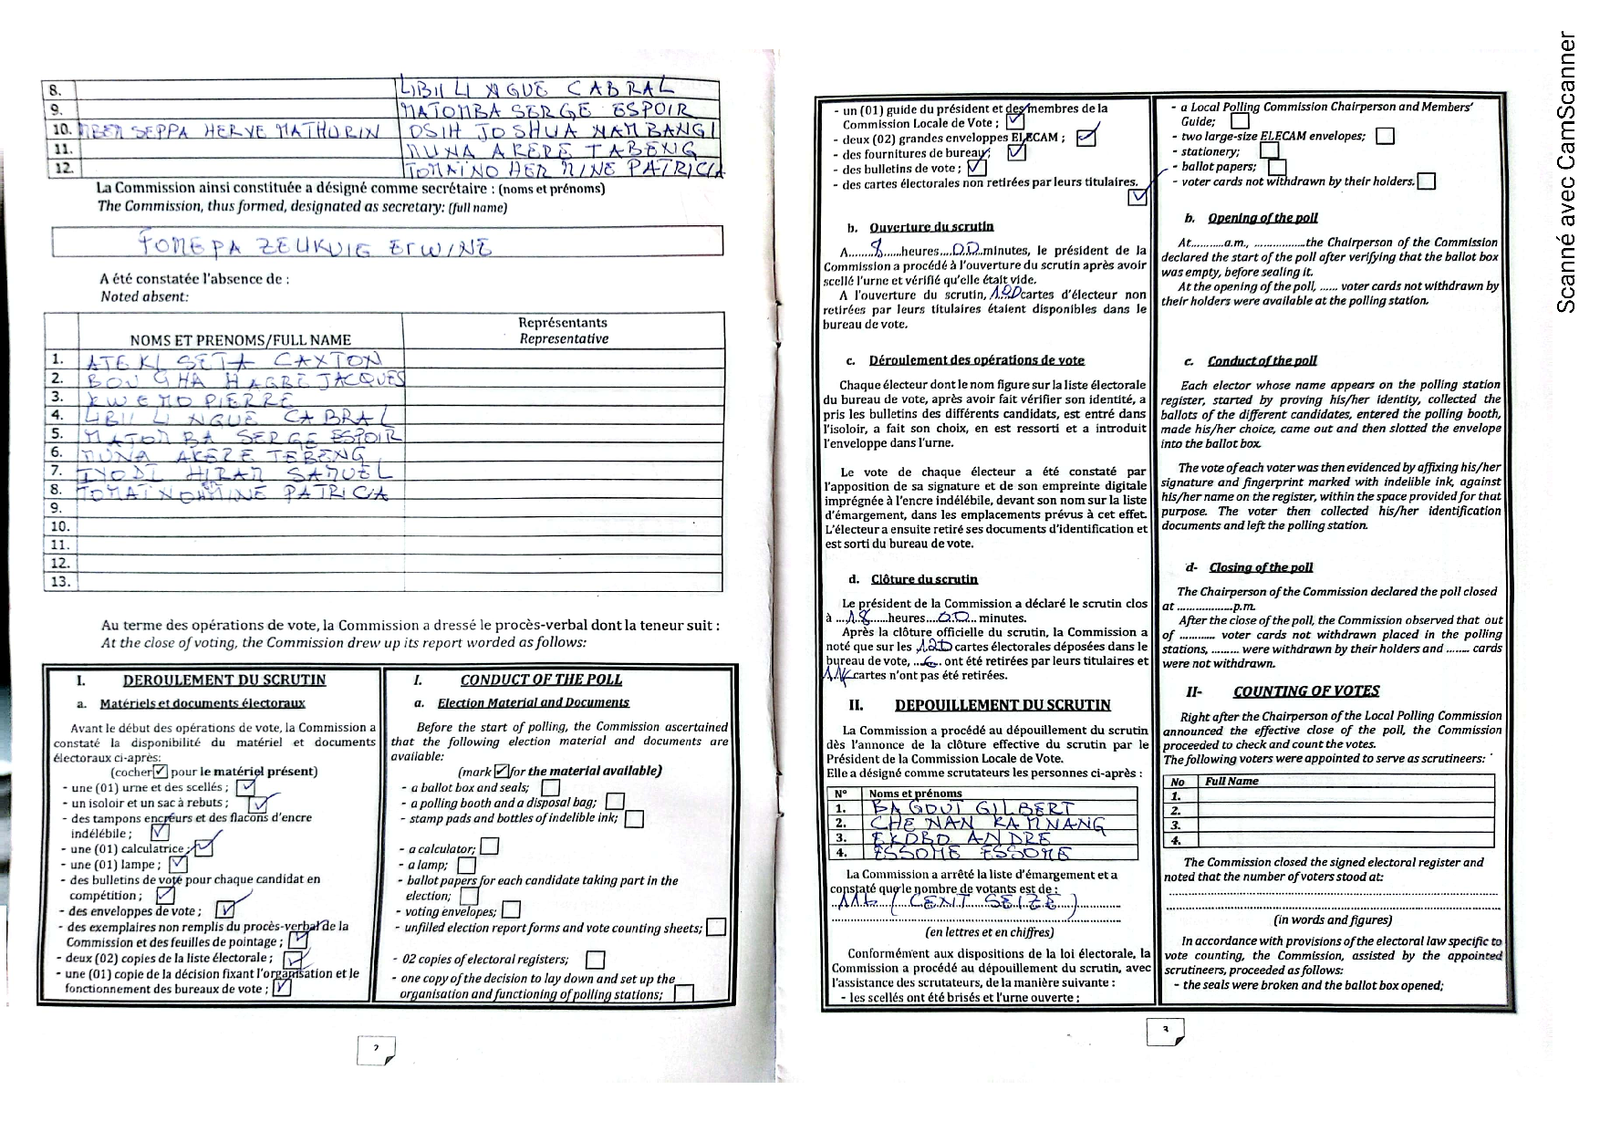 8. LIBII LI NGUE CABRAL
9. MATOMBA SERGE ESPOIR
10. SEPPA HERVE MATHURIN OSIH JOSHUA NAMBANGI
11. MUNA AKERE TABENG
12. TOMAÏNO HERMINE PATRICIA
La Commission ainsi constituée a désigné comme secrétaire : (noms et prénoms)
The Commission, thus formed, designated as secretary: (full name)
FOMEPA ZEUKUIG ERWINE
A été constatée l'absence de :
Noted absent:
NOMS ET PRENOMS/FULL NAME
Représentants
Representative
1. ATEKI SETA CAXTON
2. BOUGHA HAGBE JACQUES
3. KWEMO PIERRE
4. LIBII LI NGUE CABRAL
5. MATOMBA SERGE ESPOIR
6. MUNA AKERE TEBENG
7. IYODI HIRAM SAMUEL
8. PATRICIA
9.
10.
11.
12.
13.
Au terme des opérations de vote, la Commission a dressé le procès-verbal dont la teneur suit :
At the close of voting, the Commission drew up its report worded as follows:
I. DEROULEMENT DU SCRUTIN
a. Matériels et documents électoraux
Avant le début des opérations de vote, la Commission a
constaté la disponibilité du matériel et documents
électoraux ci-après:
(cocher pour le matériel présent)
- une (01) urne et des scellés ;
- un isoloir et un sac à rebuts ;
- des tampons encreurs et des flacons d'encre
indélébile ;
- une (01) calculatrice ;
- une (01) lampe ;
- des bulletins de vote pour chaque candidat en
compétition ;
- des enveloppes de vote ;
- des exemplaires non remplis du procès-verbal de la
Commission et des feuilles de pointage ;
- deux (02) copies de la liste électorale ;
- une (01) copie de la décision fixant l'organisation et le
fonctionnement des bureaux de vote ;
I. CONDUCT OF THE POLL
a. Election Material and Documents
Before the start of polling, the Commission ascertained
that the following election material and documents are
available:
(mark for the material available)
- a ballot box and seals;
- a polling booth and a disposal bag;
- stamp pads and bottles of indelible ink;
- a calculator;
- a lamp;
- ballot papers for each candidate taking part in the
election;
- voting envelopes;
- unfilled election report forms and vote counting sheets;
- 02 copies of electoral registers;
- one copy of the decision to lay down and set up the
organisation and functioning of polling stations;
2
- un (01) guide du président et des membres de la
Commission Locale de Vote ;
- deux (02) grandes enveloppes ELECAM ;
- des fournitures de bureau;
- des bulletins de vote ;
- des cartes électorales non retirées par leurs titulaires.
b. Ouverture du scrutin
A 8 heures 00 minutes, le président de la
Commission a procédé à l'ouverture du scrutin après avoir
scellé l'urne et vérifié qu'elle était vide.
A l'ouverture du scrutin, 120 cartes d'électeur non
retirées par leurs titulaires étaient disponibles dans le
bureau de vote.
c. Déroulement des opérations de vote
Chaque électeur dont le nom figure sur la liste électorale
du bureau de vote, après avoir fait vérifier son identité, a
pris les bulletins des différents candidats, est entré dans
l'isoloir, a fait son choix, en est ressorti et a introduit
l'enveloppe dans l'urne.
Le vote de chaque électeur a été constaté par
l'apposition de sa signature et de son empreinte digitale
imprégnée à l'encre indélébile, devant son nom sur la liste
d'émargement, dans les emplacements prévus à cet effet.
L'électeur a ensuite retiré ses documents d'identification et
est sorti du bureau de vote.
d. Clôture du scrutin
Le président de la Commission a déclaré le scrutin clos
à 18 heures 00 minutes.
Après la clôture officielle du scrutin, la Commission a
noté que sur les 120 cartes électorales déposées dans le
bureau de vote, 6 ont été retirées par leurs titulaires et
114 cartes n'ont pas été retirées.
II. DEPOUILLEMENT DU SCRUTIN
La Commission a procédé au dépouillement du scrutin
dès l'annonce de la clôture effective du scrutin par le
Président de la Commission Locale de Vote.
Elle a désigné comme scrutateurs les personnes ci-après :
N° Noms et prénoms
1. BAGOUT GILBERT
2. CHE NAN KAMNANG
3. EKOBO ANDRE
4. ESSOME ESSOME
La Commission a arrêté la liste d'émargement et a
constaté que le nombre de votants est de :
116 (CENT SEIZE)
(en lettres et en chiffres)
Conformément aux dispositions de la loi électorale, la
Commission a procédé au dépouillement du scrutin, avec
l'assistance des scrutateurs, de la manière suivante :
- les scellés ont été brisés et l'urne ouverte ;
- a Local Polling Commission Chairperson and Members'
Guide;
- two large-size ELECAM envelopes;
- stationery;
- ballot papers;
- voter cards not withdrawn by their holders.
b. Opening of the poll
At..........a.m., ................the Chairperson of the Commission
declared the start of the poll after verifying that the ballot box
was empty, before sealing it.
At the opening of the poll, ...... voter cards not withdrawn by
their holders were available at the polling station.
c. Conduct of the poll
Each elector whose name appears on the polling station
register, started by proving his/her identity, collected the
ballots of the different candidates, entered the polling booth,
made his/her choice, came out and then slotted the envelope
into the ballot box.
The vote of each voter was then evidenced by affixing his/her
signature and fingerprint marked with indelible ink, against
his/her name on the register, within the space provided for that
purpose. The voter then collected his/her identification
documents and left the polling station.
d- Closing of the poll
The Chairperson of the Commission declared the poll closed
at ..................p.m.
After the close of the poll, the Commission observed that out
of ............ voter cards not withdrawn placed in the polling
stations, ......... were withdrawn by their holders and ....... cards
were not withdrawn.
II- COUNTING OF VOTES
Right after the Chairperson of the Local Polling Commission
announced the effective close of the poll, the Commission
proceeded to check and count the votes.
The following voters were appointed to serve as scrutineers:
No Full Name
1.
2.
3.
4.
The Commission closed the signed electoral register and
noted that the number of voters stood at:
(in words and figures)
In accordance with provisions of the electoral law specific to
vote counting, the Commission, assisted by the appointed
scrutineers, proceeded as follows:
- the seals were broken and the ballot box opened;
3
Scanné avec CamScanner